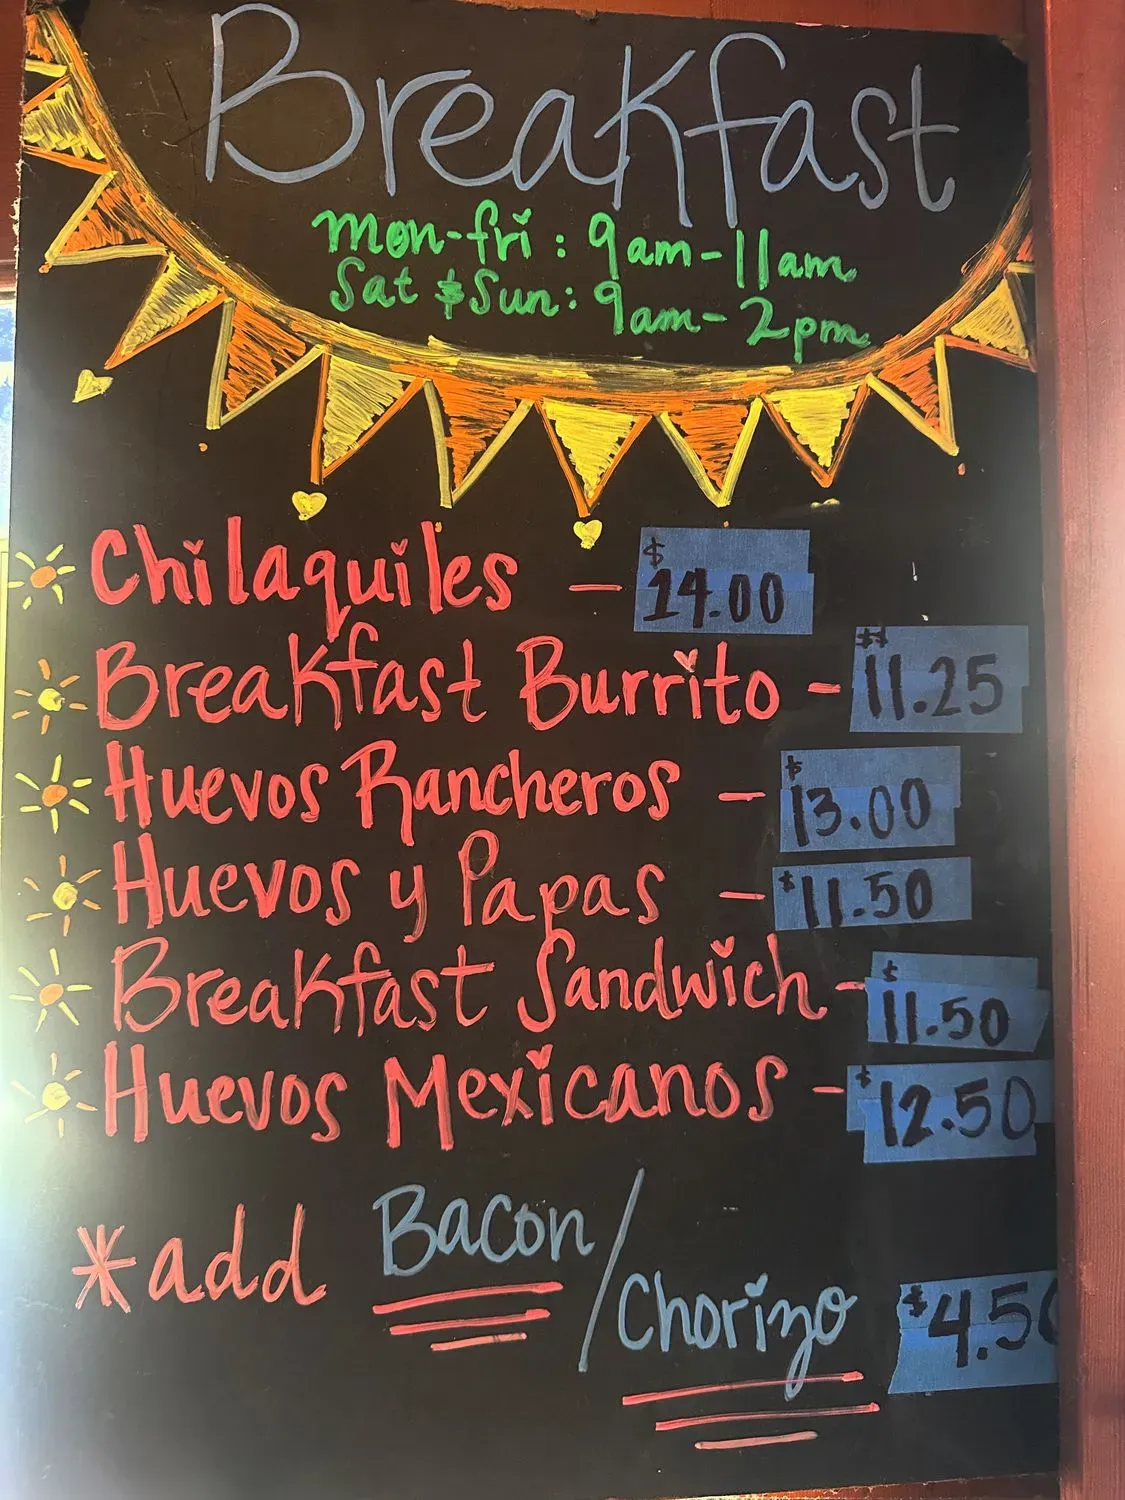 Breakfast
Mon-fri : 9am-11am
Sat & Sun: 9am-2pm
Chilaquiles - $14.00
Breakfast Burrito - $11.25
Huevos Rancheros - $13.00
Huevos y Papas - $11.50
Breakfast Sandwich - $11.50
Huevos Mexicanos - $12.50
*add Bacon/
Chorizo $4.50